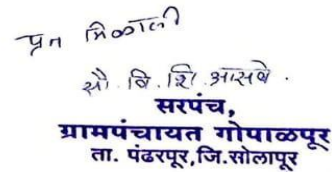 प्रत मिळाली
सौ. वि. शि. आसबे.
सरपंच,
ग्रामपंचायत गोपाळपूर
ता. पंढरपूर,जि.सोलापूर